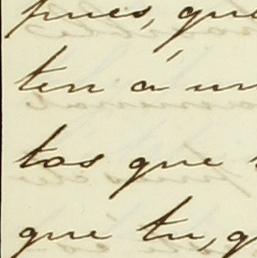 pues, que
ten á un
tos que
que tu, q